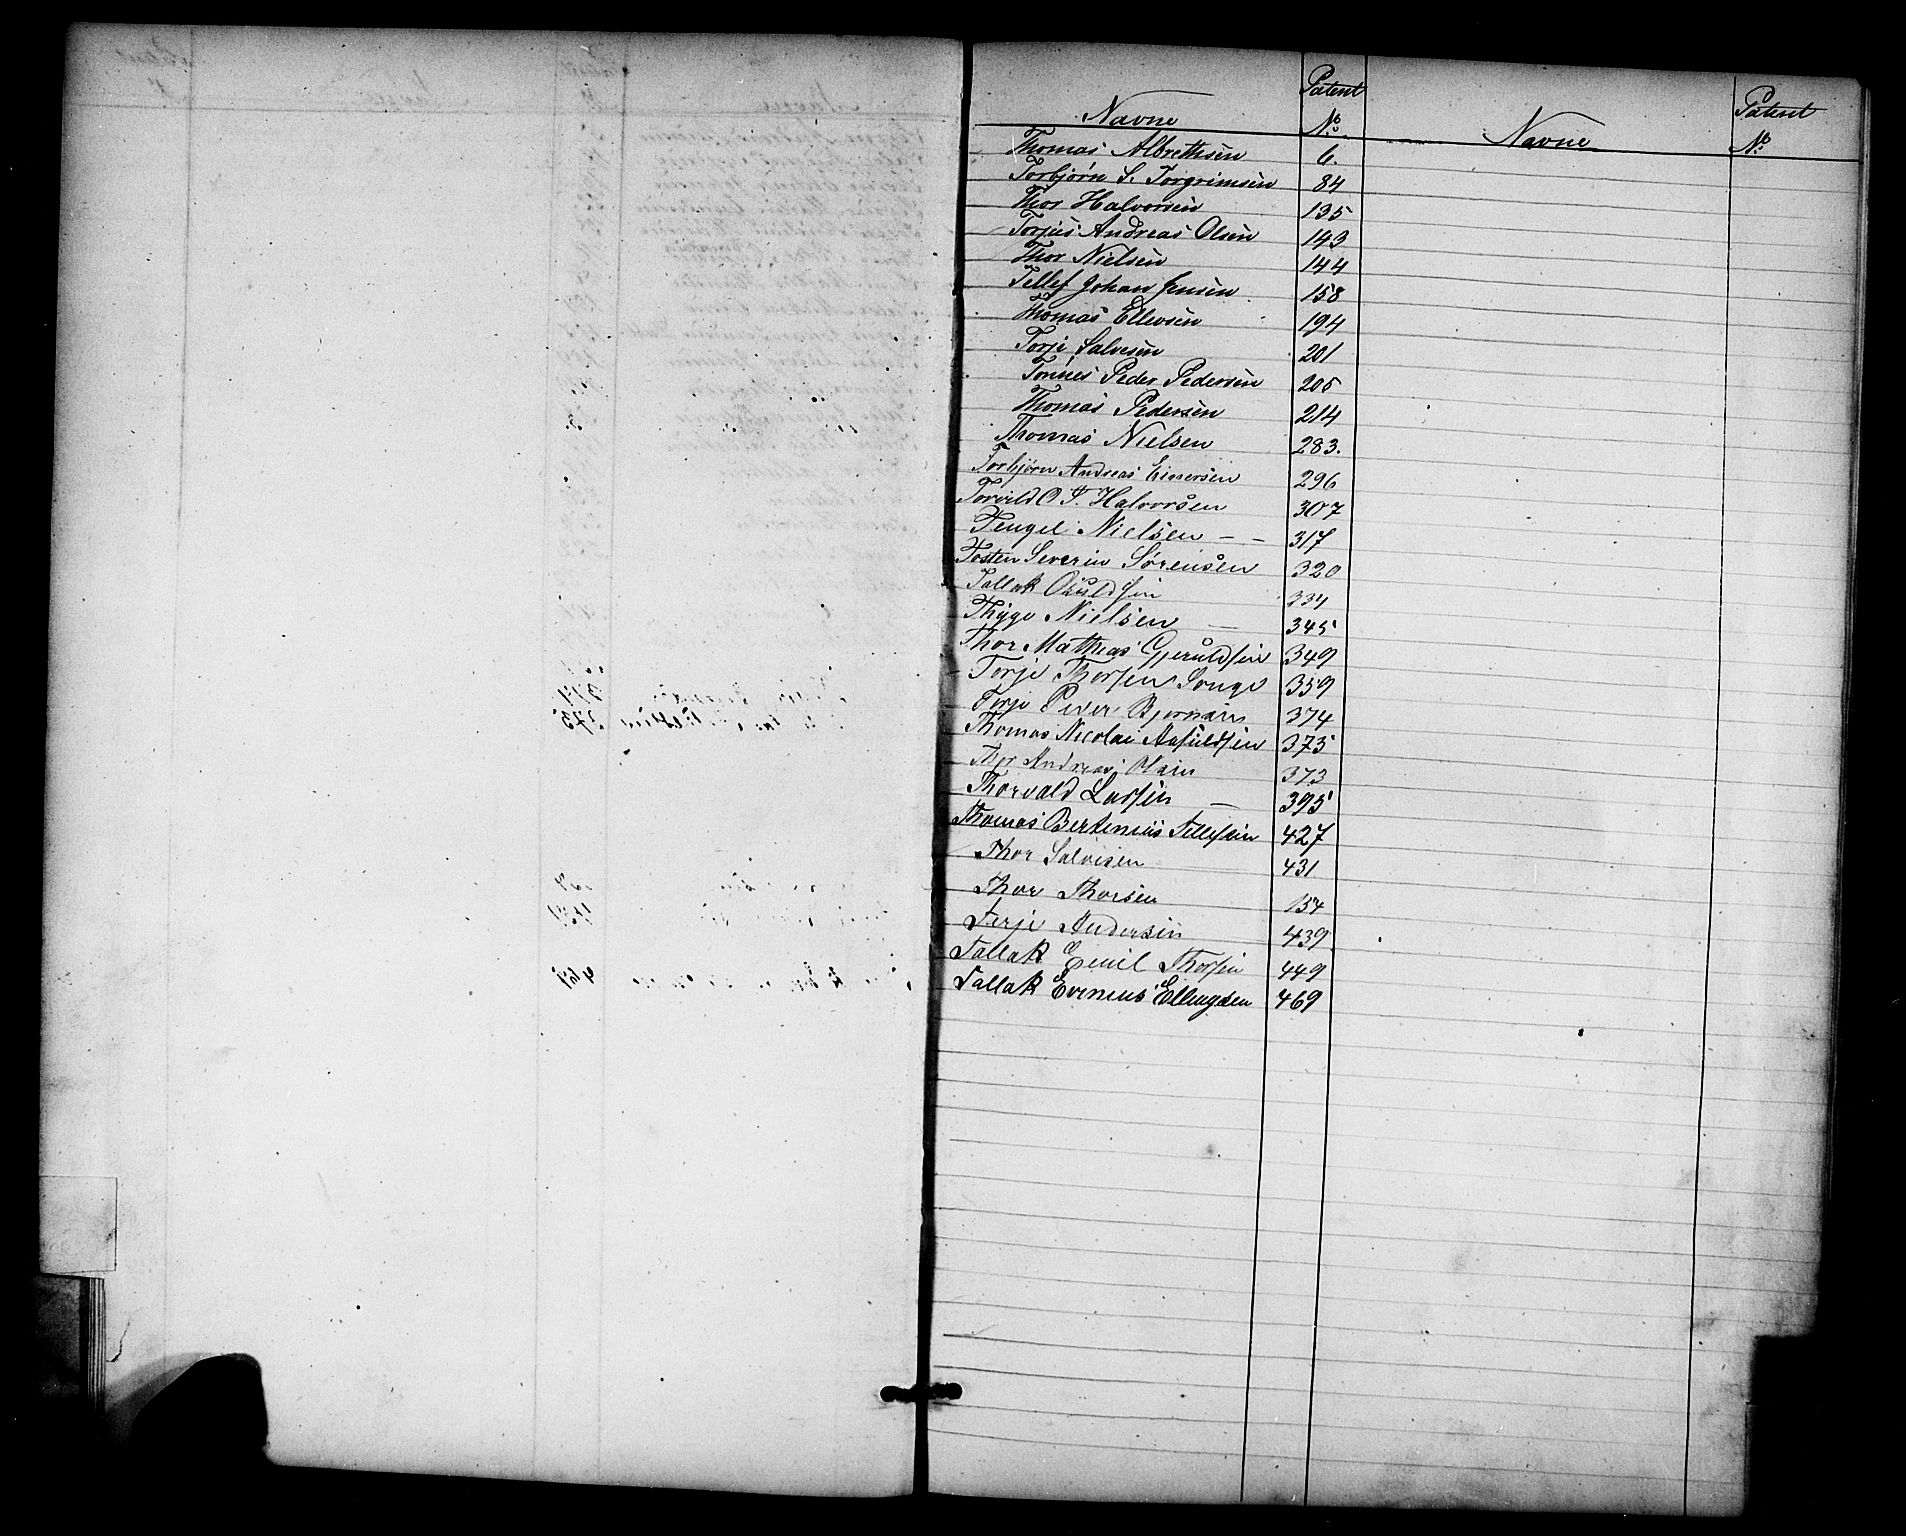 Navne Patent No. Navne Patent No.
Thomas Albrethsen 6.
Torbjørn S. Torgrimsen 84
Thor Halvorsen 135
Torjus Andreas Olsen 143
Thor Nielsen 144
Tellef Johan Jensen 158
Thomas Ellevsen 194
Torje Salvesen 201
Tønnes Peder Pedersen 205
Thomas Pedersen 214
Thomas Nielsen 283.
Torbjørn Andreas Einersen 296
Torvild O. T. Halvorsen 307
Tengel Nielsen - - 317
Tosten Severin Sørensen 320
Tallak Osuldsen 334
Thyge Nielsen - 345
Thor Mathias Gjeruldsen 349
Torje Thorsen Songe 359
Terje Peder 374
Thomas Nicolai Aasuldsen 375
Thor Andreas Olsen 373
Thorvald Larsen - 395
Thomas Bertinius Tellefsen 427
Thor Salvesen 431
Thor Thorsen 154
Terje Andersen 439
Tallak Emil Thorsen 449
Tallak Evenius Ellingsen 469